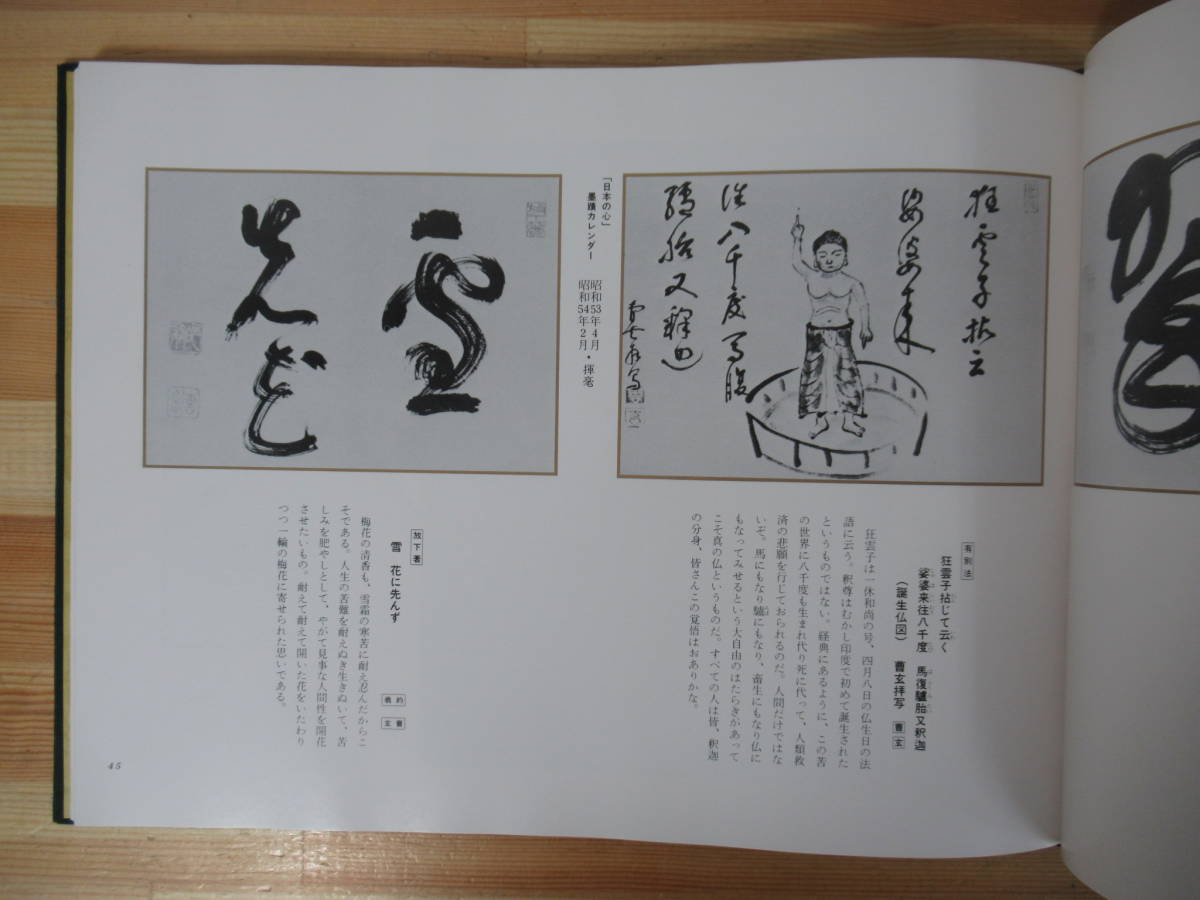 狂雲子拈云
娑婆来
往八千度馬腹
驢胎又釈迦
「日本の心」
墨蹟カレンダー
昭和53年4月
昭和54年2月・揮毫
雪
先花
有剳法
狂雲子拈じて云く
娑婆来往八千度 馬復驢胎又釈迦
(誕生仏図) 曹玄拝写 曹玄
狂雲子は一休和尚の号、四月八日の仏生日の法
語に云う。釈尊はむかし印度で初めて誕生された
というものではない。経典にあるように、この苦
の世界に八千度も生まれ代り死に代って、人類救
済の悲願を行じておられるのだ。人間だけではな
いぞ。馬にもなり驢にもなり、畜生にもなり仏に
もなってみせるという大自由のはたらきがあって
こそ真の仏というものだ。すべての人は皆、釈迦
の分身、皆さんこの覚悟はおありかな。
放下著
雪 花に先んず
梅花の清香も、雪霜の寒苦に耐え忍んだからこ
そである。人生の苦難を耐えぬき生きぬいて、苦
しみを肥やしとして、やがて見事な人間性を開花
させたいもの。耐えて耐えて開いた花をいたわり
つつ一輪の梅花に寄せられた思いである。
45